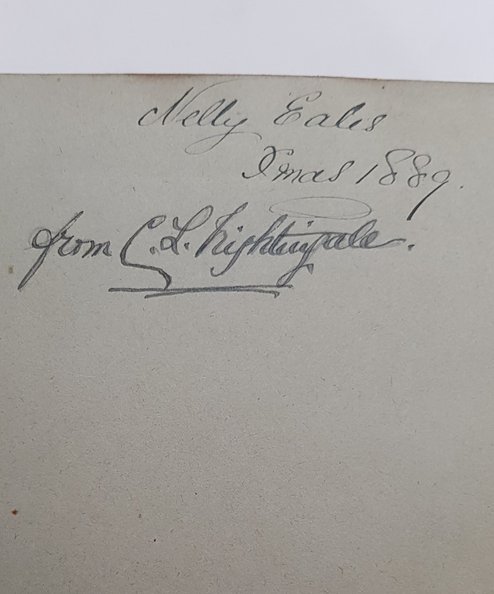 Nelly Eales
Xmas 1889.
from C. L. Nightingale.